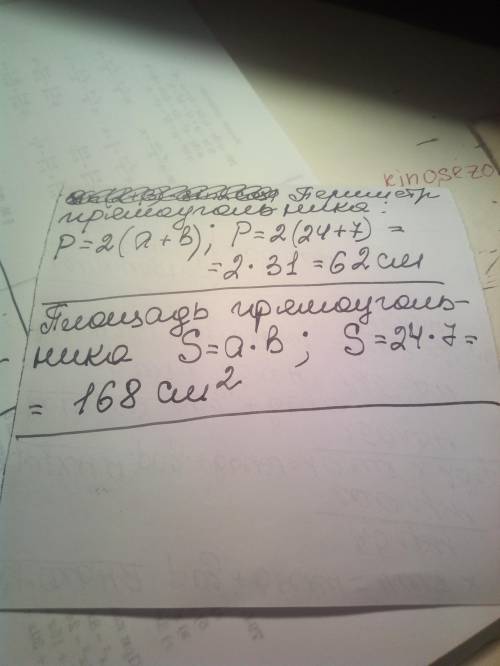 kinosezo
Периметр
прямоугольника:
P=2(a+b); P=2(24+7)=
=2·31=62см
Площадь прямоуголь-
ника S=a·b; S=24·7=
= 168 см²